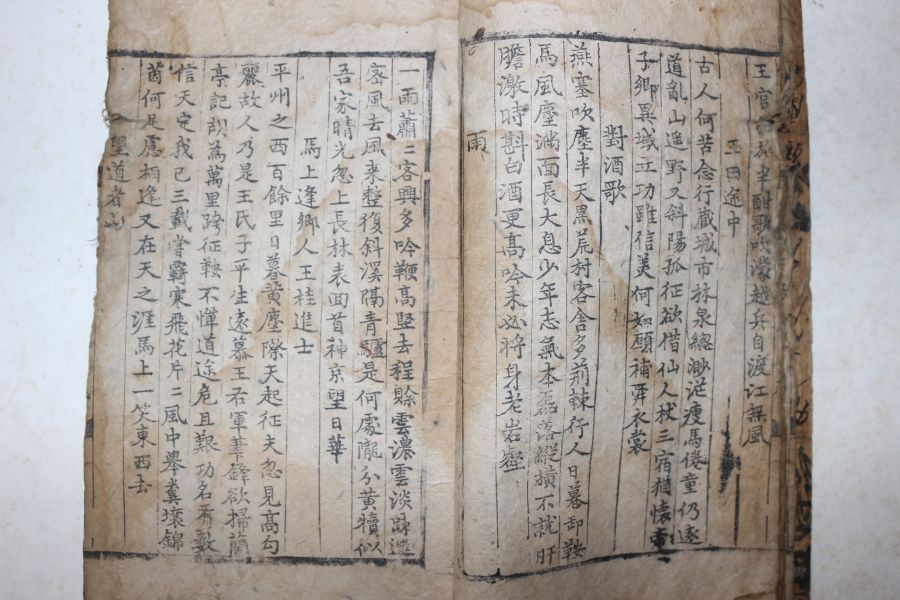 王官放半酣歌吹濛越兵自渡江無風
途中
古人何苦念行藏城市林泉緫渺茫瘦馬倦童仍遠
道亂山遥野又斜陽孤征欲借仙人杖三宿猶懷
子鄉異域立功雖信美何如願補舜衣裳
對酒歌
燕塞吹塵半天黑荒村客舍多荊棘行人日暮卸鞍
馬風塵滿面長大息少年志氣本磊落縱横不就肝
膽激時斟白酒更高吟未必將身老岩壑
雨
一雨蕭〻客興多吟鞭高竪去程賖雲濃雲淡
密風去風来整復斜溪隔青驢是何處隴分黄犢似
吾家晴光忽上長林表回首神京望日華
馬上逢鄉人王桂進士
平州之西百餘里日暮黄塵際天起征夫忽見高句
麗故人乃是王氏子平生遠慕王右軍筆鋒欲掃蘭
亭記却為萬里跨征鞍不憚道途危且艱功名有數
信天定我已三載甞霸寒飛花片〻風中舉糞壤錦
茵何是愿相逢又在天之涯馬上一笑東西去
望道者山